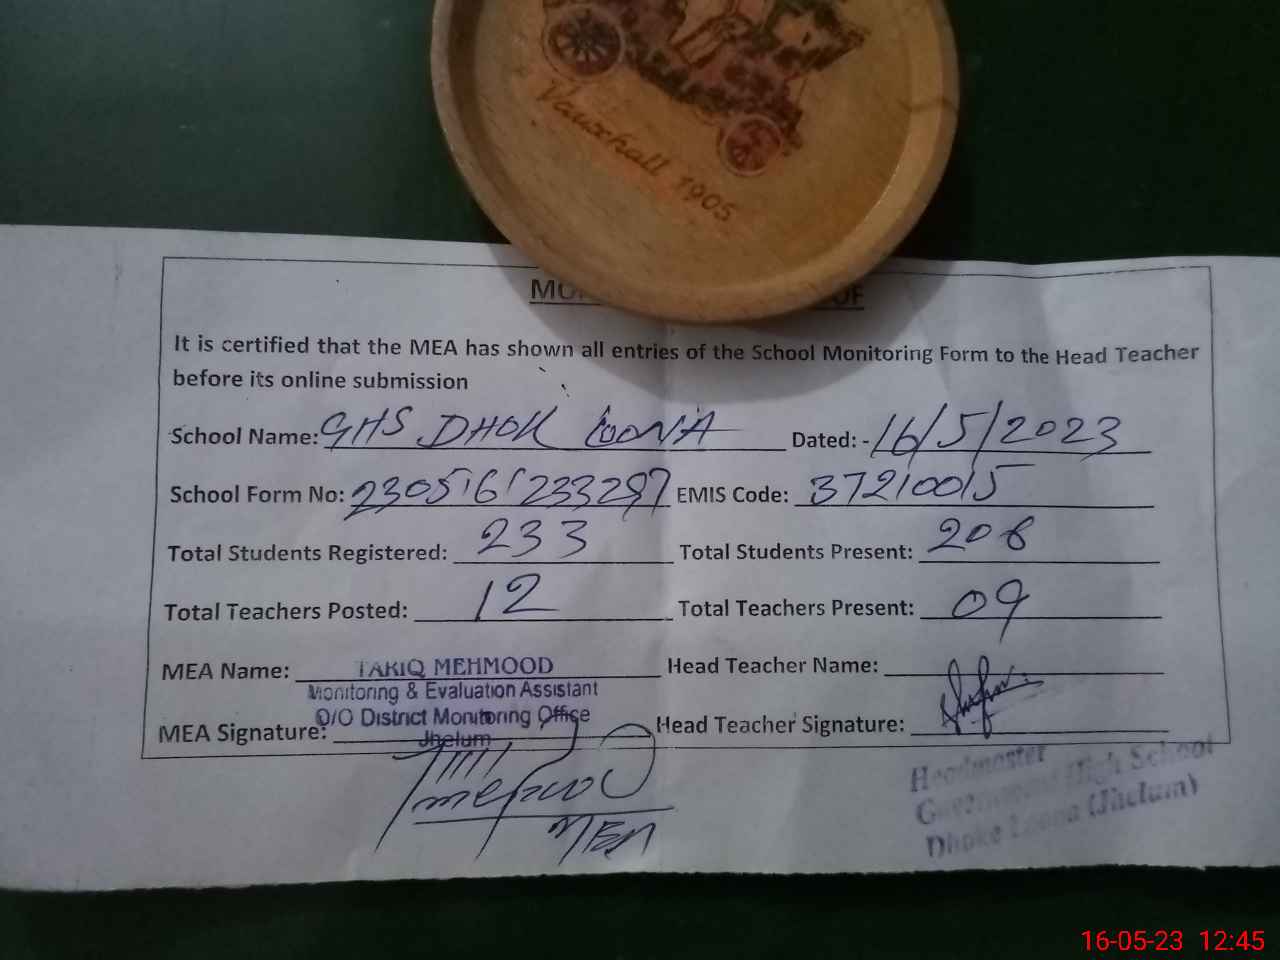 Vauxhall 1905
It is certified that the MEA has shown all entries of the School Monitoring Form to the Head Teacher
before its online submission
School Name: GHS DHOK LOONA Dated: - 16/5/2023
School Form No: 230516/233297 EMIS Code: 37210015
Total Students Registered: 233 Total Students Present: 208
Total Teachers Posted: 12 Total Teachers Present: 09
MEA Name: TARIQ MEHMOOD Head Teacher Name:
Monitoring & Evaluation Assistant
O/O District Monitoring Office
MEA Signature: Head Teacher Signature:
Jhelum
MEA
Headmaster
Government High School
Dhoke Loona (Jhelum)
16-05-23 12:45